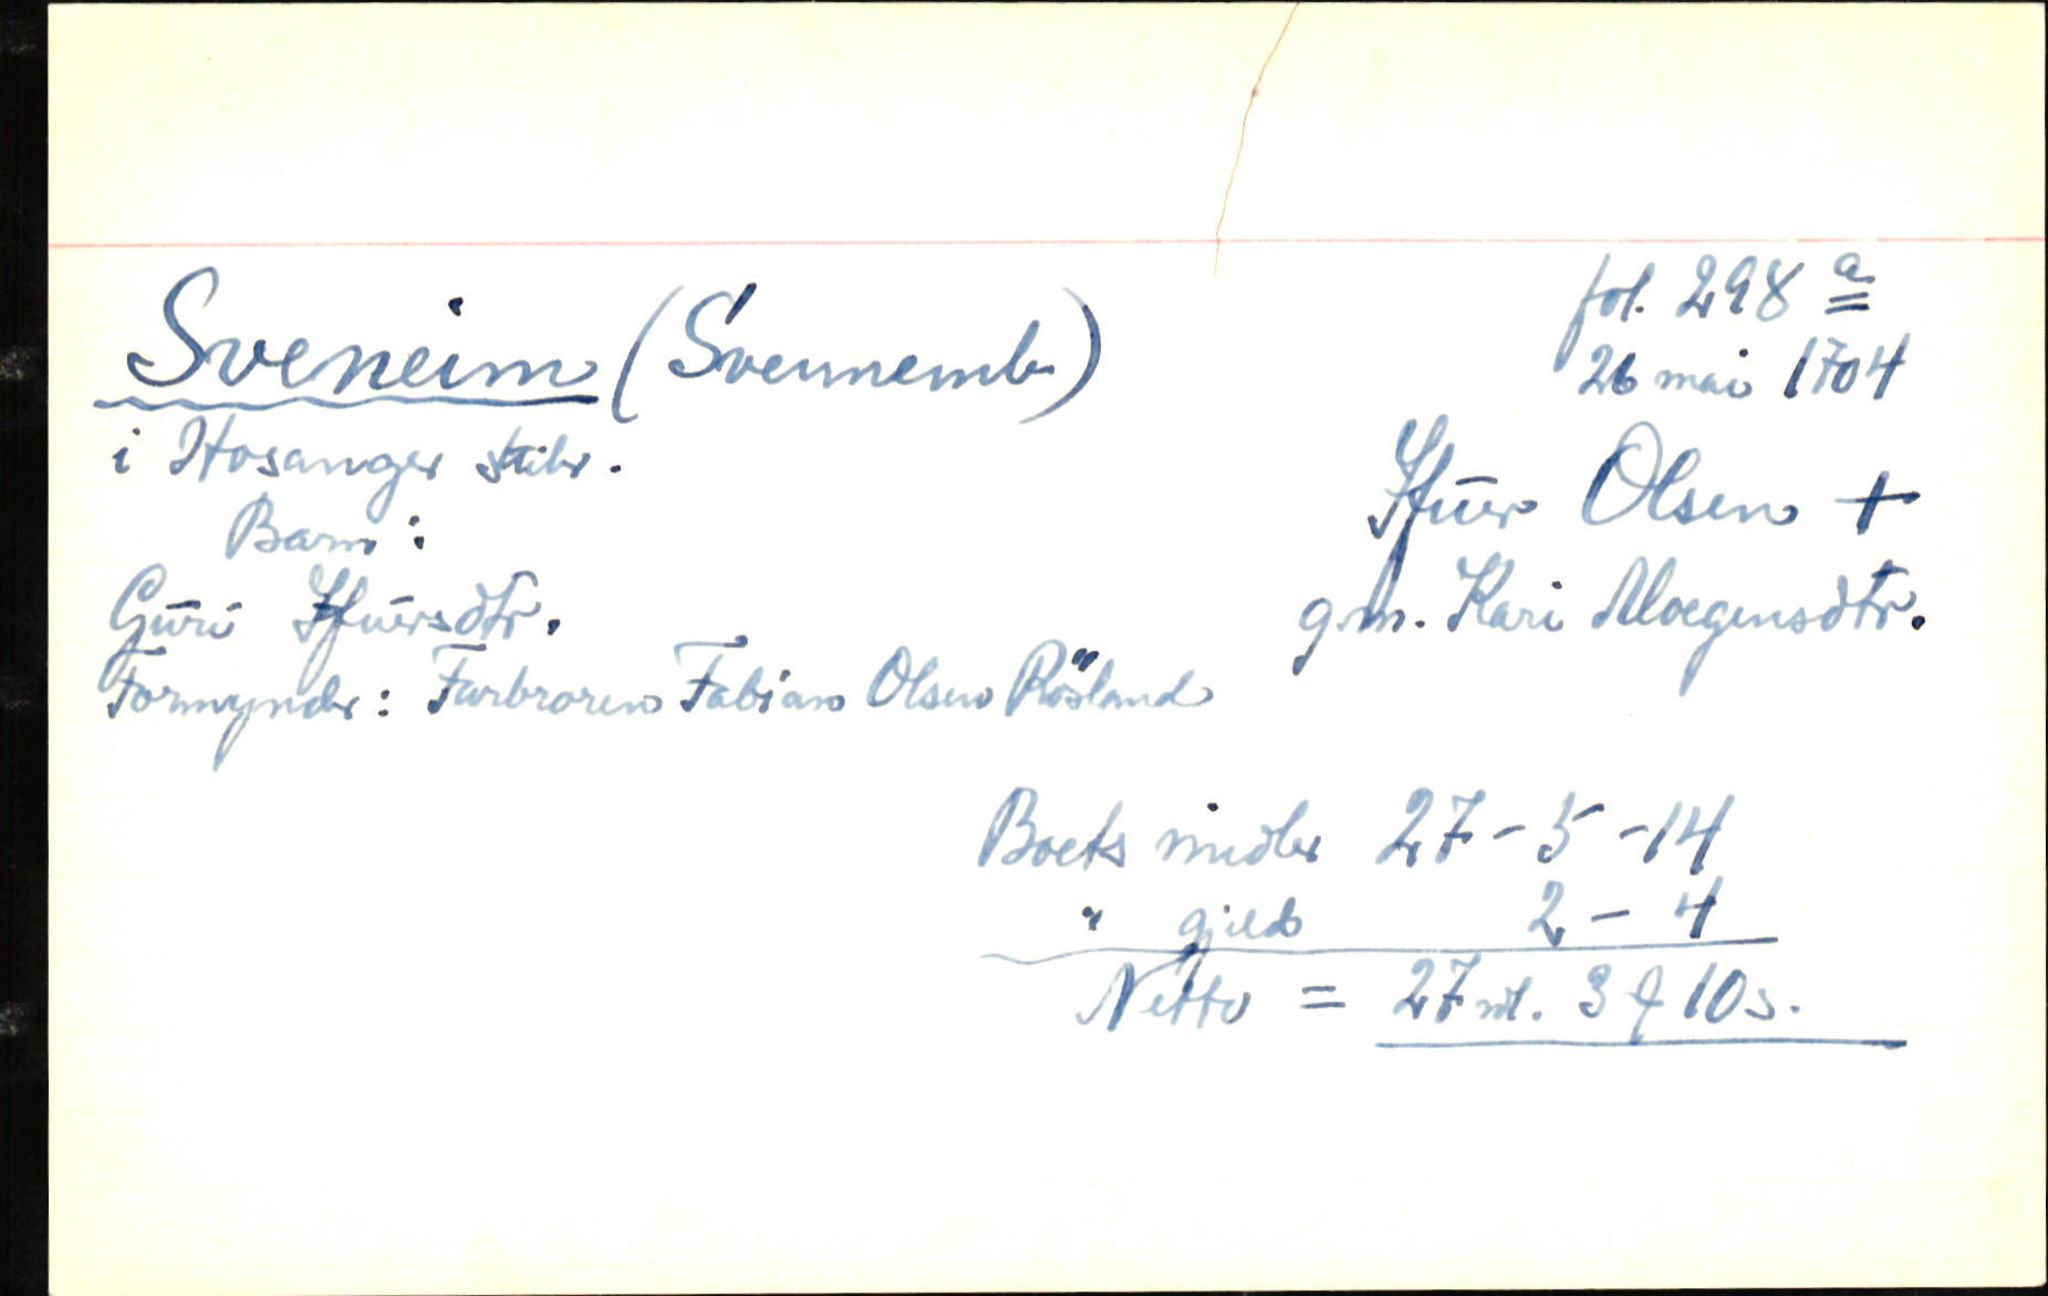 fol. 298 a
26 mai 1704
Sveneim (Svennemb)
i Hosanger skibr.
Ifuer Olsen +
g.m. Kari Mogensdtr.
Barn:
Guri Ifuersdtr.
Formynder: Farbroren Fabian Olsen Røsland
Boets midler 27 - 5 - 14
" gjeld 2 - 4
Netto = 27 rd. 3 ʠ 10 s.